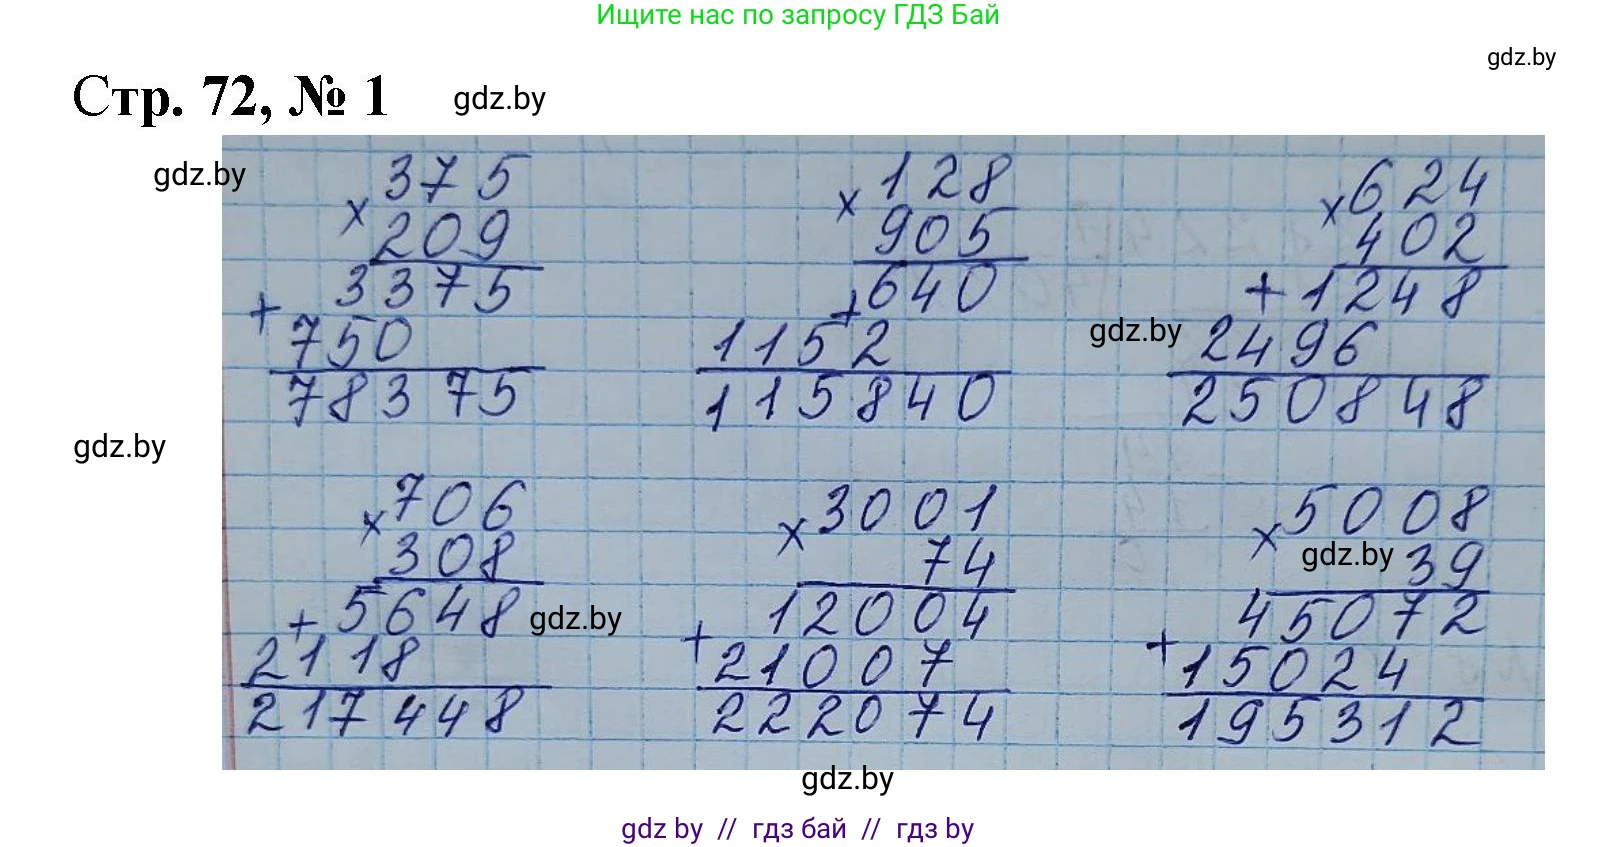 Ищите нас по запросу ГДЗ Бай
gdz.by
Стр. 72, № 1 gdz.by
gdz.by
375
× 209
3375
+ 750
78375
128
× 905
640
+ 1152
115840
624
× 402
+ 1248
2496
250848
gdz.by
gdz.by
706
× 308
+ 5648
2118
217448
gdz.by
3001
× 74
12004
+ 21007
222074
5008
× 39
gdz.by
45072
+ 15024
195312
gdz.by
gdz by // гдз бай // гдз by